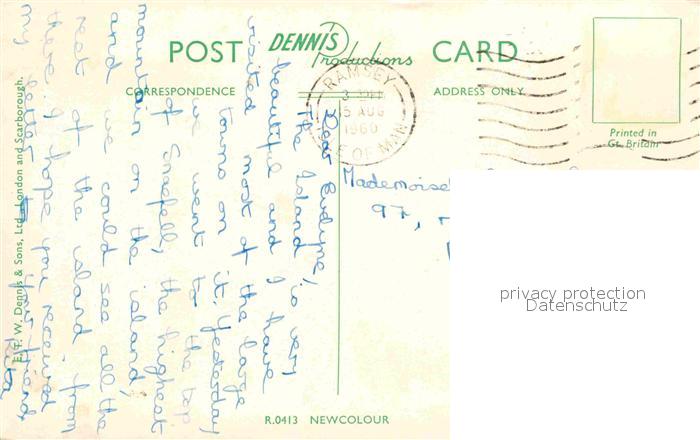 POST DENNIS Productions CARD
CORRESPONDENCE
ADDRESS ONLY
RAMSEY
15 AUG
1960
ISLE OF MAN
Printed in
Gt. Britain
Dear Evelyne,
The Island is very
beautiful and I have
visited most of the large
towns on it. Yesterday
we went to the top
of Snaefell, the highest
mountain on the island,
and we could see all the
rest of the island from
there. I hope you received
my letter
Your friend
Rita
Mademoisel
97,
privacy protection
Datenschutz
E. T. W. Dennis & Sons, Ltd., London and Scarborough.
R.0413 NEWCOLOUR